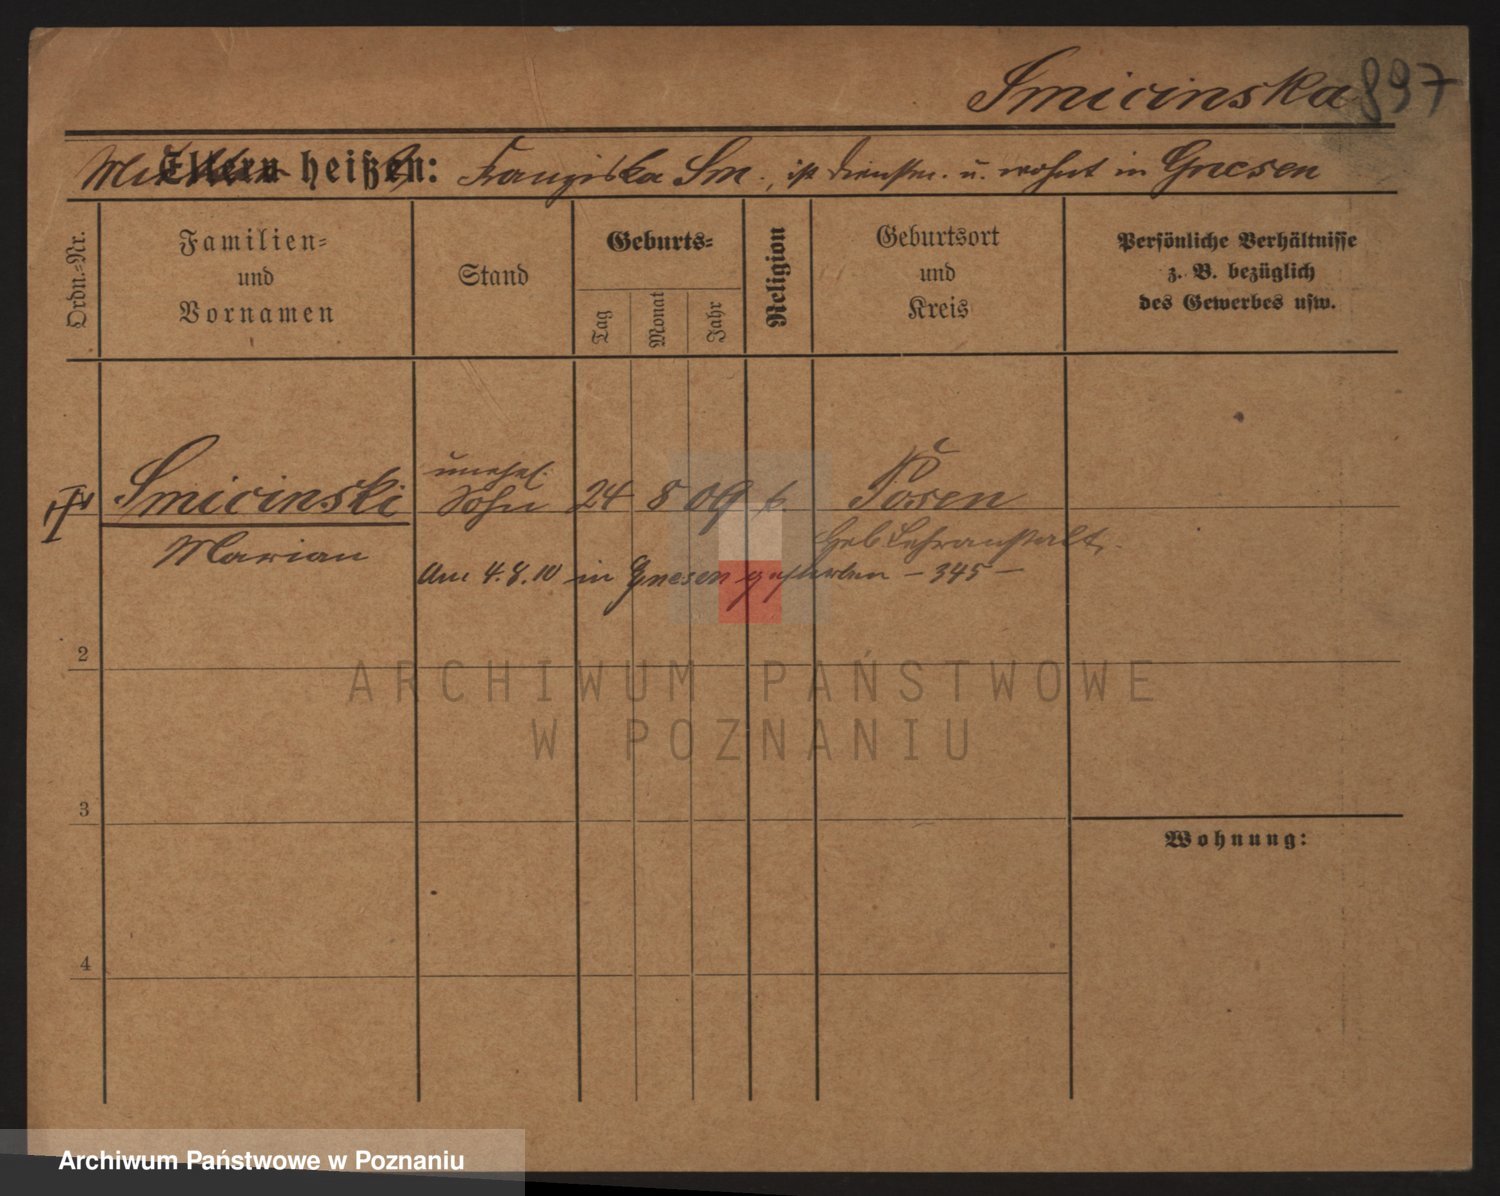 Smicinska 897
Mutter
Eltern heißen: Franziska Sm., ist Dienstm. u. wohnt in Gnesen
Ordn.=Nr.
Familien=
und
Vornamen
Stand
Geburts=
Tag
Monat
Jahr
Religion
Geburtsort
und
Kreis
Persönliche Verhältnisse
z. B. bezüglich
des Gewerbes usw.
Smicinski
unehel.
Sohn 24 8 09 k. Posen
Marian
Heb. Lehranstalt.
Am 4.8.10 in Gnesen gestorben – 345 –
2
3
4
Wohnung:
ARCHIWUM PAŃSTWOWE
W POZNANIU
Archiwum Państwowe w Poznaniu